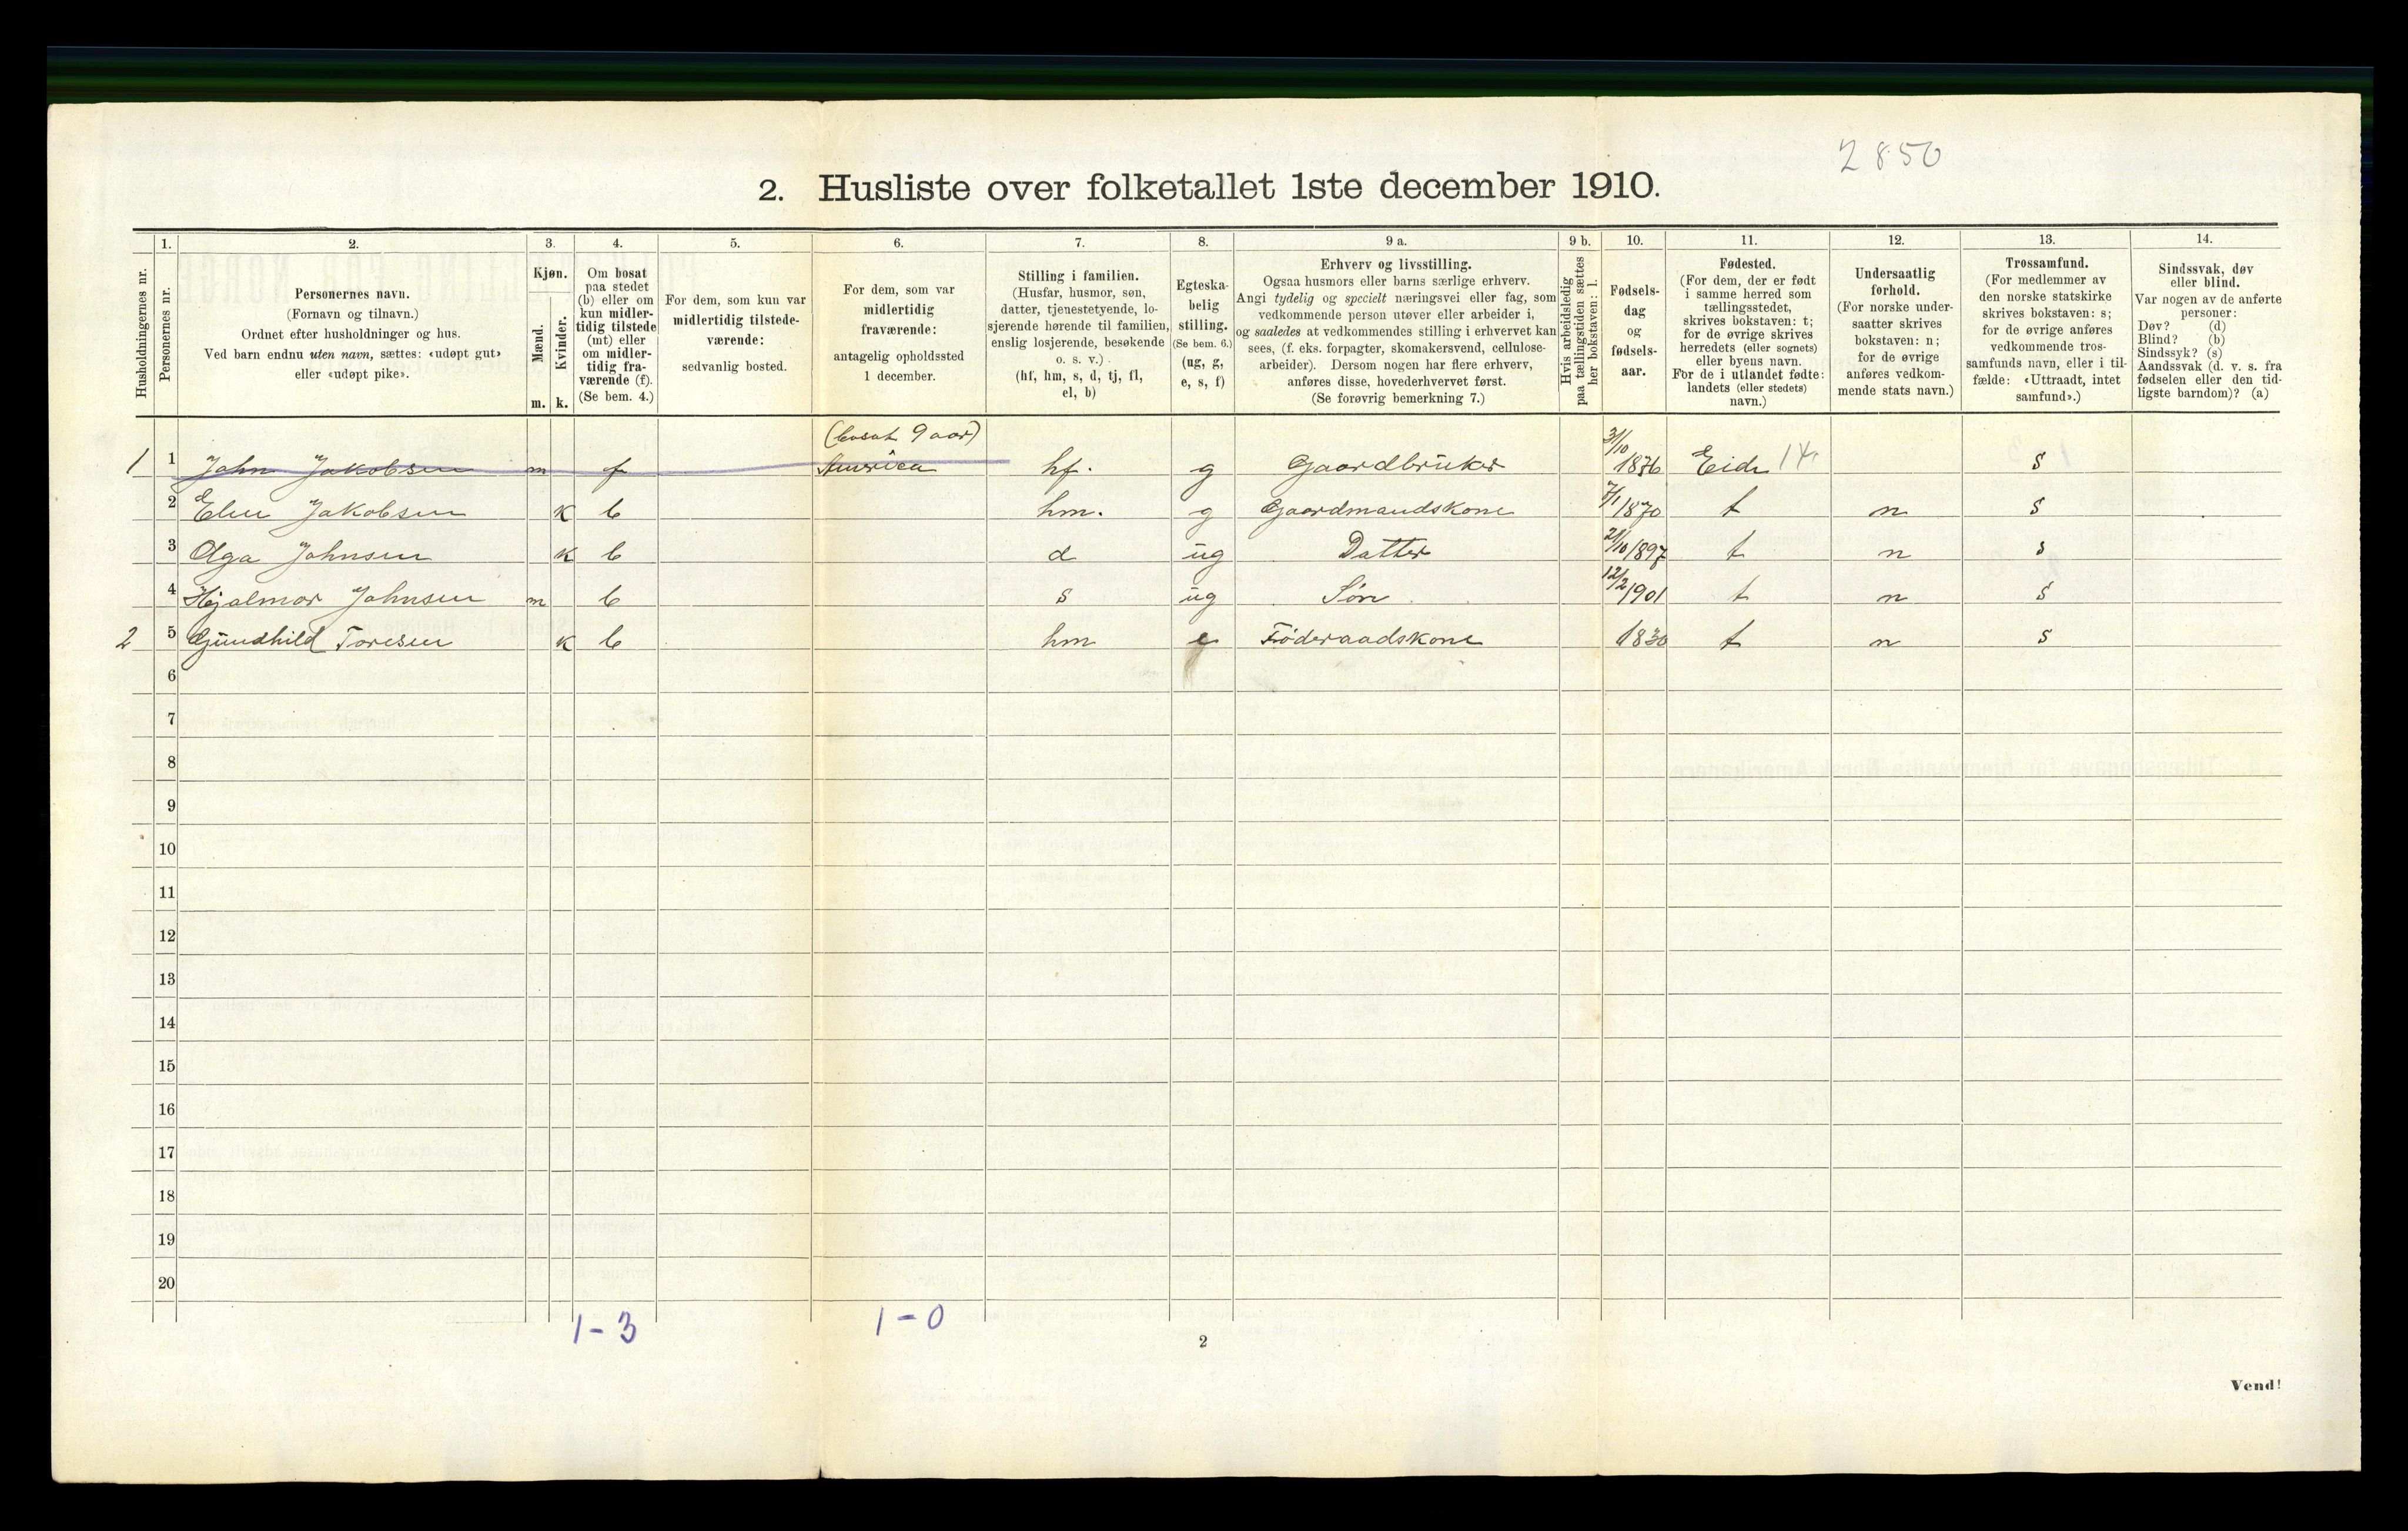 2850
2. Husliste over folketallet 1ste december 1910.
Husholdningernes nr.
1.
Personernes nr.
2.
Personernes navn.
(Fornavn og tilnavn.)
Ordnet efter husholdninger og hus.
Ved barn endnu uten navn, sættes: «udøpt gut»
eller «udøpt pike».
3.
Kjøn.
Mænd.
m.
Kvinder.
k.
4.
Om bosat
paa stedet
(b) eller om
kun midler-
tidig tilstede
(mt) eller
om midler-
tidig fra-
værende (f).
(Se bem. 4.)
5.
For dem, som kun var
midlertidig tilstede-
værende:
sedvanlig bosted.
6.
For dem, som var
midlertidig
fraværende:
antagelig opholdssted
1 december.
7.
Stilling i familien.
(Husfar, husmor, søn,
datter, tjenestetyende, lo-
sjerende hørende til familien,
enslig losjerende, besøkende
o. s. v.)
(hf, hm, s, d, tj, fl,
el, b)
8.
Egteska-
belig
stilling.
(Se bem. 6.)
(ug, g,
e, s, f)
9 a.
Erhverv og livsstilling.
Ogsaa husmors eller barns særlige erhverv.
Angi tydelig og specielt næringsvei eller fag, som
vedkommende person utøver eller arbeider i,
og saaledes at vedkommendes stilling i erhvervet kan
sees, (f. eks. forpagter, skomakersvend, cellulose-
arbeider). Dersom nogen har flere erhverv,
anføres disse, hovederhvervet først.
(Se forøvrig bemerkning 7.)
9 b.
Hvis arbeidsledig
paa tællingstiden sættes
her bokstaven: l.
10.
Fødsels-
dag
og
fødsels-
aar.
11.
Fødested.
(For dem, der er født
i samme herred som
tællingsstedet,
skrives bokstaven: t;
for de øvrige skrives
herredets (eller sognets)
eller byens navn.
For de i utlandet fødte:
landets (eller stedets)
navn.)
12.
Undersaatlig
forhold.
(For norske under-
saatter skrives
bokstaven: n;
for de øvrige
anføres vedkom-
mende stats navn.)
13.
Trossamfund.
(For medlemmer av
den norske statskirke
skrives bokstaven: s;
for de øvrige anføres
vedkommende tros-
samfunds navn, eller i til-
fælde: «Uttraadt, intet
samfund».)
14.
Sindssvak, døv
eller blind.
Var nogen av de anførte
personer:
Døv? (d)
Blind? (b)
Sindssyk? (s)
Aandssvak (d. v. s. fra
fødselen eller den tid-
ligste barndom)? (a)
(bosat 9 aar)
1 1 John Jakobsen m f America hf. g Gaardbruker 3/10 1876 Eide 14 s
2 Elen Jakobsen k b hm. g Gaardmandskone 7/1 1870 t n s
3 Olga Johnsen k b d ug Datter 2/10 1897 t n s
4 Hjalmar Johnsen m b s ug Søn 12/2 1901 t n s
2 5 Gundhild Toresen k b hm e Föderaadskone 1830 t n s
6
7
8
9
10
11
12
13
14
15
16
17
18
19
20
1-3 1-0
2
Vend!